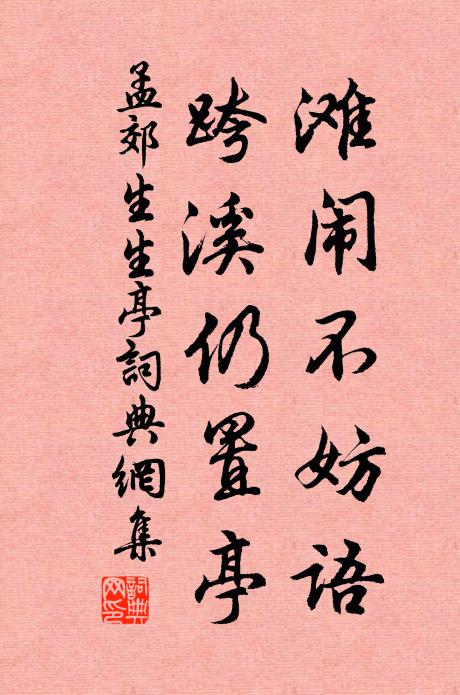 滩闹不妨语
跨溪仍置亭
孟郊生生亭詞典網集
詞典網印